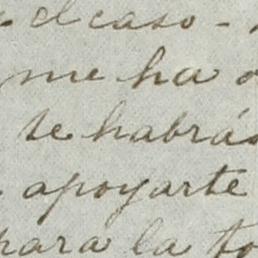 el caso -
me ha
te habrás
apoyarte
para la